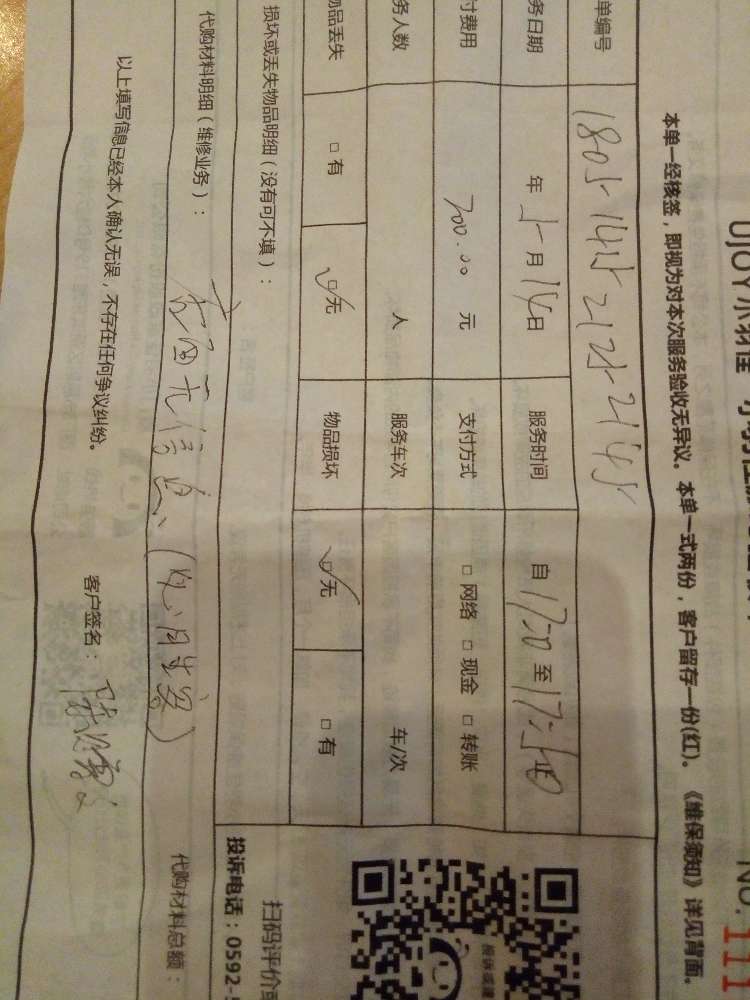 UJOY小羽佳
NO. 111
本单一经核签，即视为对本次服务验收无异议。本单一式两份，客户留存一份(红)。《维保须知》详见背面。
单编号 1805-1415-2125-2145
务日期 年 5 月 14 日 服务时间 自 17:20 至 17:50 止
付费用 200.00 元 支付方式 □ 网络 □ 现金 □ 转账
务人数 人 服务车次 车/次
物品丢失 □ 有 □ 无 物品损坏 □ 无 □ 有
损坏或丢失物品明细（没有可不填）：
扫码评价或
投诉电话：0592-5
代购材料明细（维修业务）： 代购材料总额：
以上填写信息已经本人确认无误，不存在任何争议纠纷。 客户签名：